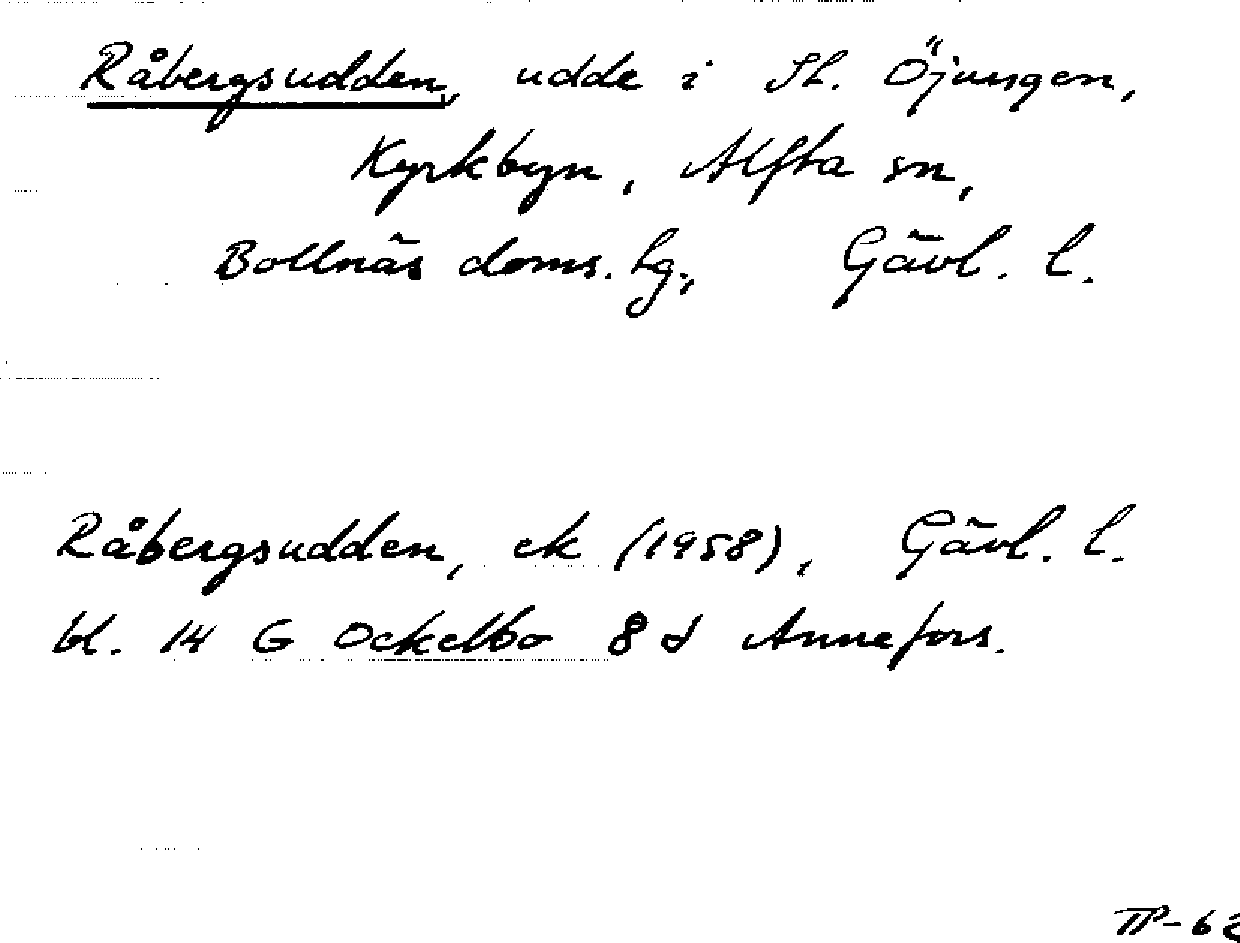 Råbergsudden, udde i St. Öjungen,
Kyrkbyn, Alfta sn,
Bollnäs doms. hg., Gävl. l.
Råbergsudden, ek (1958), Gävl. l.
bl. 14 G Ockelbo 8 d Annefors.
TP-62